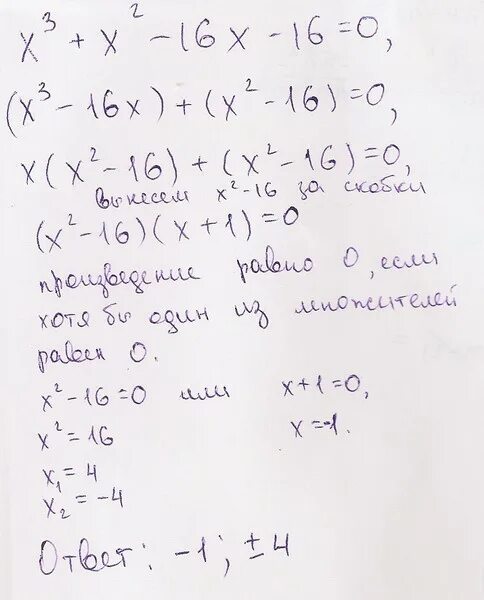 x³ + x² - 16x - 16 = 0,
(x³ - 16x) + (x² - 16) = 0,
x(x² - 16) + (x² - 16) = 0,
вынесем x² - 16 за скобки
(x² - 16)(x + 1) = 0
произведение равно 0, если
хотя бы один из множителей
равен 0.
x² - 16 = 0 или x + 1 = 0,
x² = 16 x = -1.
x₁ = 4
x₂ = -4
Ответ: -1; ± 4